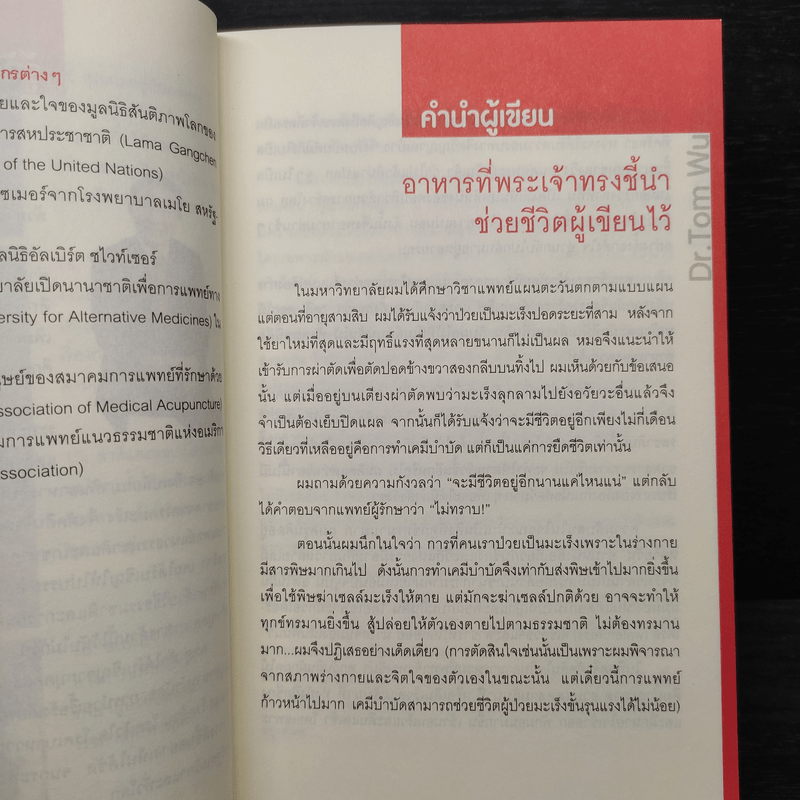 กรต่างๆ
ยและใจของมูลนิธิสันติภาพโลกของ
การสหประชาชาติ (Lama Gangchen
of the United Nations)
ซเมอร์จากโรงพยาบาลเมโย สหรัฐ
ลนิธิอัลเบิร์ต ชไวท์เซอร์
ยาลัยเปิดนานาชาติเพื่อการแพทย์ทาง
ersity for Alternative Medicines) ใน
นุษย์ของสมาคมการแพทย์ที่รักษาด้วย
ssociation of Medical Acupuncture)
มการแพทย์แนวธรรมชาติแห่งอเมริกา
ssociation)
คำนำผู้เขียน
Dr.Tom Wu
อาหารที่พระเจ้าทรงชี้นำ
ช่วยชีวิตผู้เขียนไว้
ในมหาวิทยาลัยผมได้ศึกษาวิชาแพทย์แผนตะวันตกตามแบบแผน
แต่ตอนที่อายุสามสิบ ผมได้รับแจ้งว่าป่วยเป็นมะเร็งปอดระยะที่สาม หลังจาก
ใช้ยาใหม่ที่สุดและมีฤทธิ์แรงที่สุดหลายขนานก็ไม่เป็นผล หมอจึงแนะนำให้
เข้ารับการผ่าตัดเพื่อตัดปอดข้างขวาสองกลีบบนทิ้งไป ผมเห็นด้วยกับข้อเสนอ
นั้น แต่เมื่ออยู่บนเตียงผ่าตัดพบว่ามะเร็งลุกลามไปยังอวัยวะอื่นแล้วจึง
จำเป็นต้องเย็บปิดแผล จากนั้นก็ได้รับแจ้งว่าจะมีชีวิตอยู่อีกเพียงไม่กี่เดือน
วิธีเดียวที่เหลืออยู่คือการทำเคมีบำบัด แต่ก็เป็นแค่การยืดชีวิตเท่านั้น
ผมถามด้วยความกังวลว่า "จะมีชีวิตอยู่อีกนานแค่ไหนแน่" แต่กลับ
ได้คำตอบจากแพทย์ผู้รักษาว่า "ไม่ทราบ!"
ตอนนั้นผมนึกในใจว่า การที่คนเราป่วยเป็นมะเร็งเพราะในร่างกาย
มีสารพิษมากเกินไป ดังนั้นการทำเคมีบำบัดจึงเท่ากับส่งพิษเข้าไปมากยิ่งขึ้น
เพื่อใช้พิษฆ่าเซลล์มะเร็งให้ตาย แต่มักจะฆ่าเซลล์ปกติด้วย อาจจะทำให้
ทุกข์ทรมานยิ่งขึ้น สู้ปล่อยให้ตัวเองตายไปตามธรรมชาติ ไม่ต้องทรมาน
มาก...ผมจึงปฏิเสธอย่างเด็ดเดี่ยว (การตัดสินใจเช่นนั้นเป็นเพราะผมพิจารณา
จากสภาพร่างกายและจิตใจของตัวเองในขณะนั้น แต่เดี๋ยวนี้การแพทย์
ก้าวหน้าไปมาก เคมีบำบัดสามารถช่วยชีวิตผู้ป่วยมะเร็งขั้นรุนแรงได้ไม่น้อย)